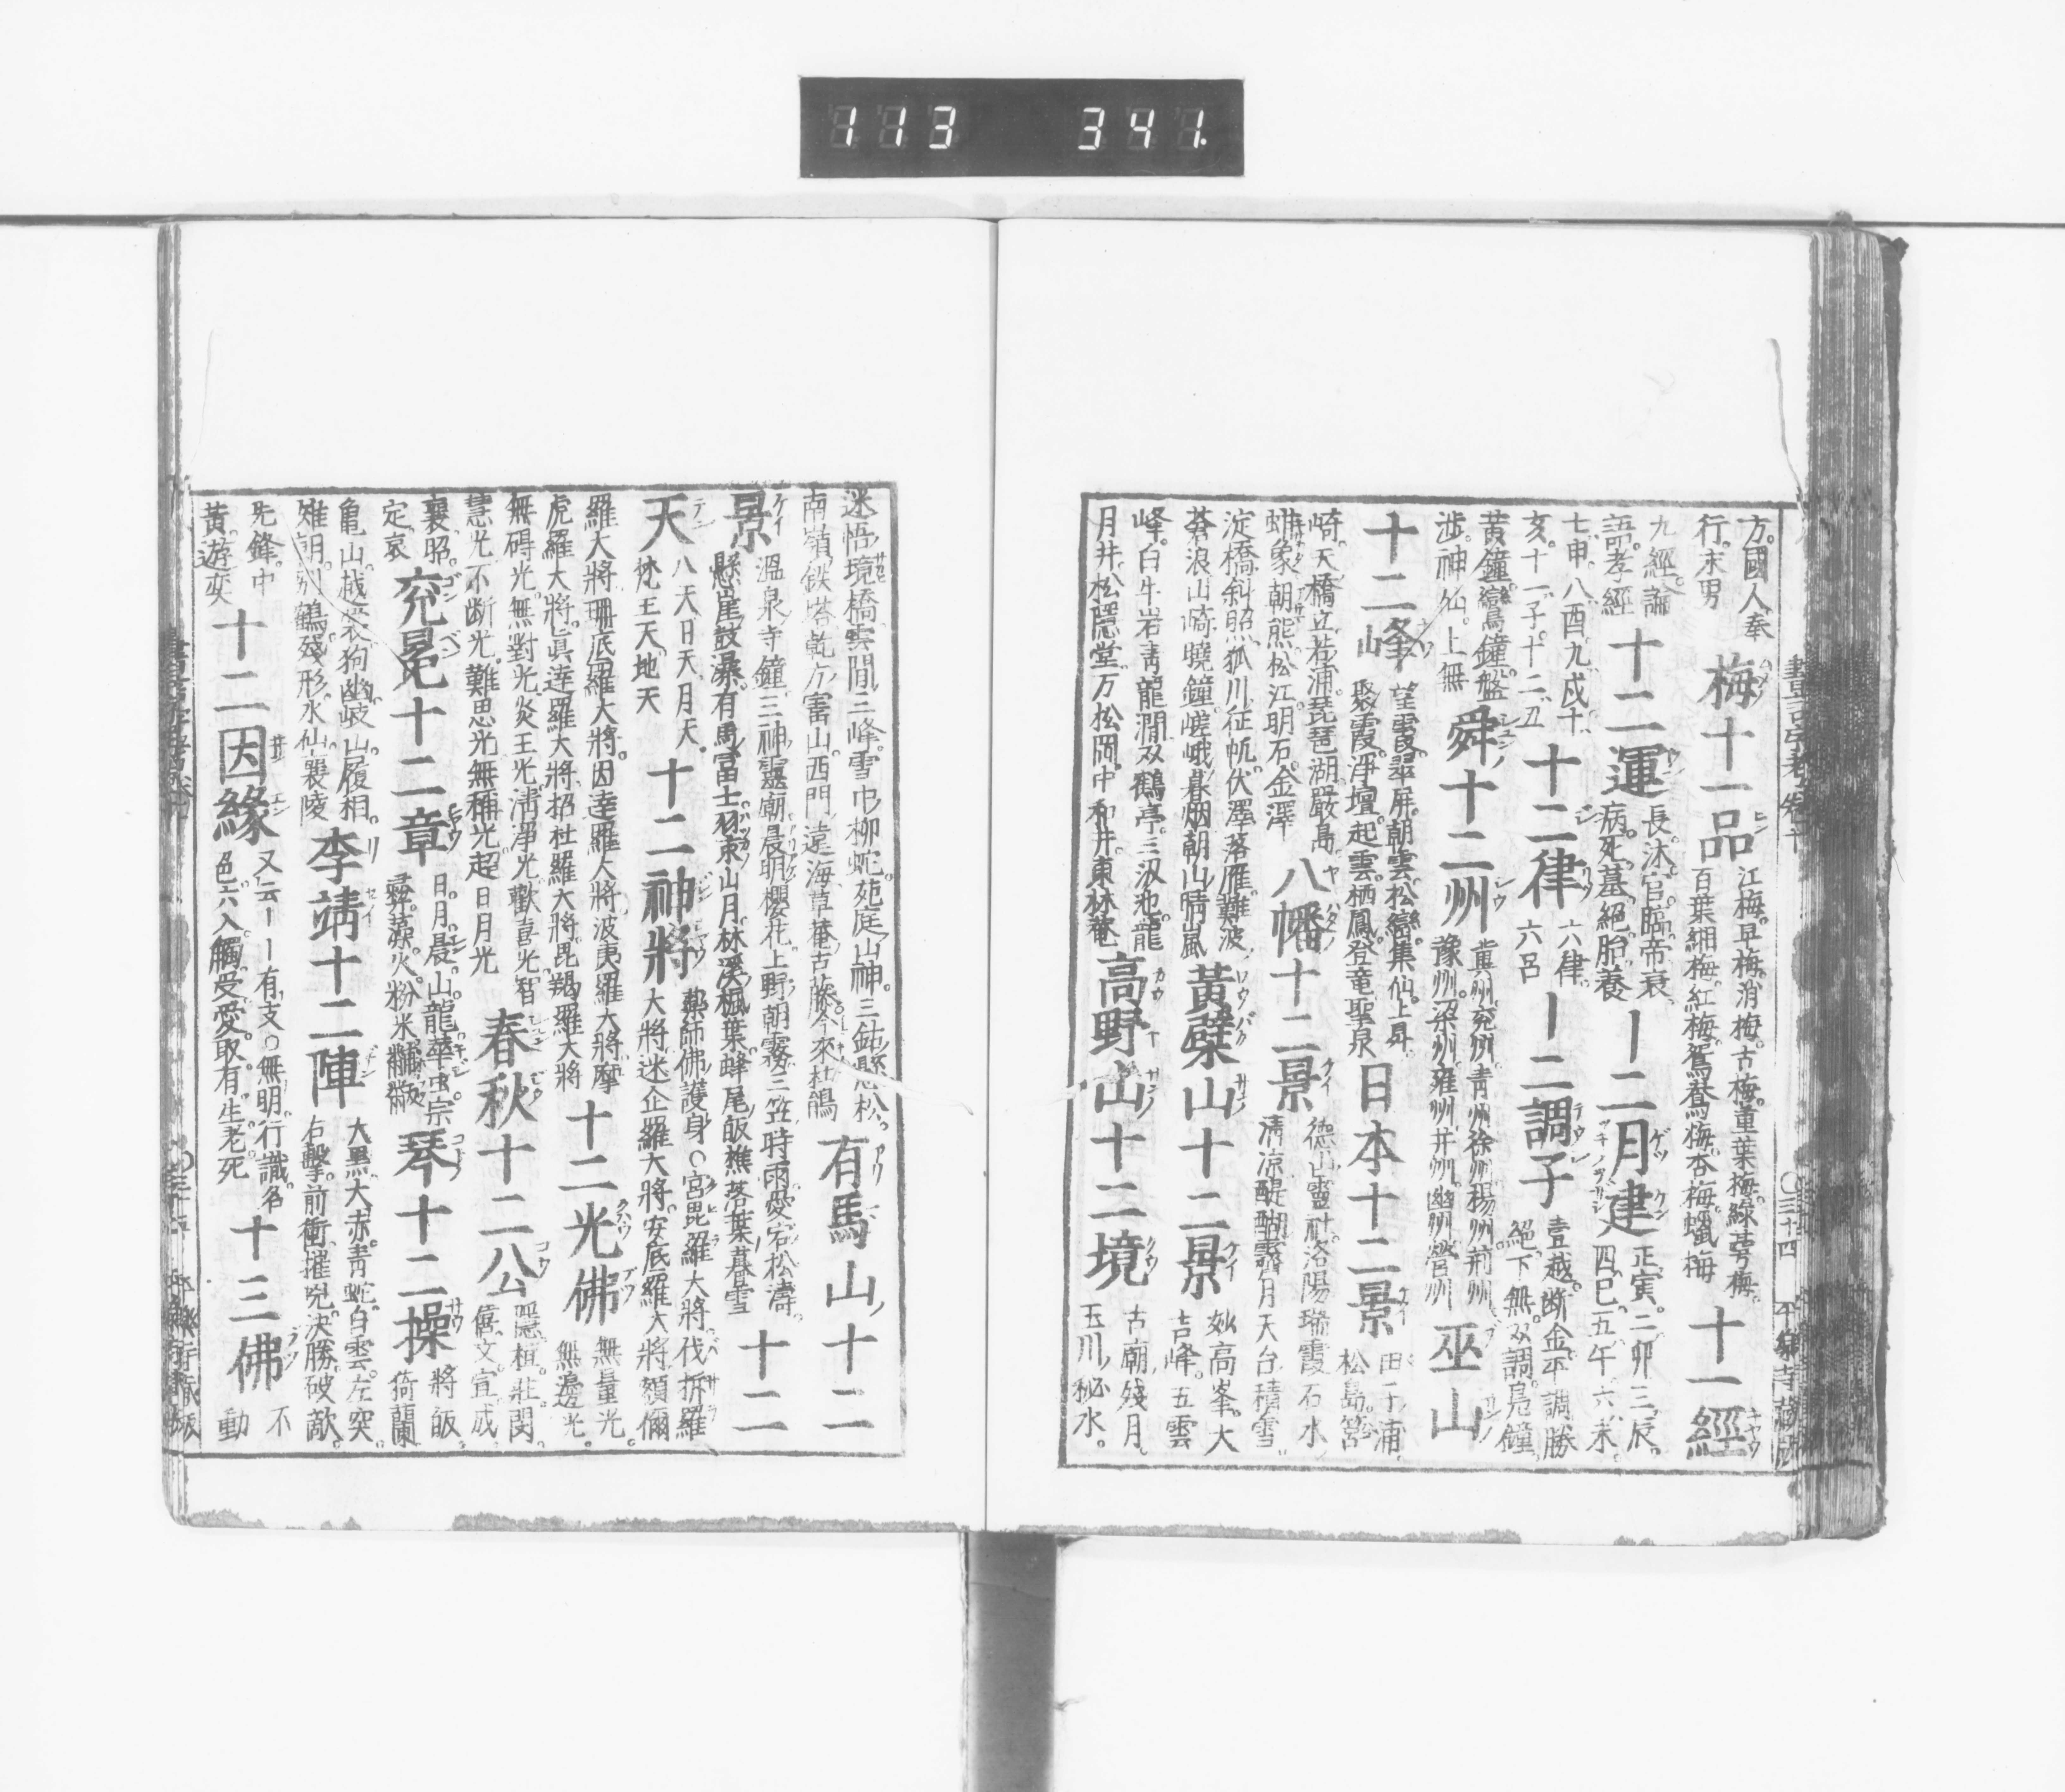 113 341.
方。國人奉
行。末男
梅十一品
江梅。早梅。消梅。古梅。重葉梅。綠萼梅。
百葉緗梅。紅梅。鴛鴦梅。杏梅。蠟梅
十一經
九經。論
語。孝經
十二運
長。沐。官。臨。帝。衰
病。死。墓。絕。胎。養
｜二月建
正寅。二卯三辰。
四巳。五午。六未。
七申。八酉九戍十
亥。十一子。十二丑
十二律
六律。
六呂
｜二調子
壹越。断金。平調。勝
絕。下無。双調。鳬鐘。
黃鐘。鸞鐘。盤
渉。神仙。上無
舜十二州
冀州。兗州。青州。徐州。楊州。荊州
豫州。梁州。雍州。并州。幽州。營州
巫山
十二峰
望霞。翠屏。朝雲。松巒。集仙。上昇。
聚霞。淨壇。起雲。栖鳳。登竜。聖泉
日本十二景
田子浦。
松島。筥
崎。天橋立。若浦。琵琶湖。嚴島。
蚶象。朝熊。松江。明石。金澤
八幡十二景
德山靈社。洛陽瑞霞。石水
清凉。醍醐霽月。天台積雪。
淀橋斜照。狐川征帆。伏澤落雁。難波
蒼浪。山崎曉鐘。嵯峨暮烟。朝山晴嵐
黃檗山十二景
妙高峯。大
吉峰。五雲
峰。白牛岩。青龍澗。双鶴亭。三汲池。龍
月井。松隱堂。万松岡。中和井。東林菴
高野山十二境
古廟殘月。
玉川秘水。
迷悟境橋。雲間三峰。雪巾柳蛇。苑庭山神。三鈷懸松。
南嶺鉄塔。乾方富山。西門遠海。草菴古藤。今來杜鵑
有馬山十二
景
溫泉寺鐘。三神靈廟。晨明櫻花。上野朝霧。三笠時雨。愛宕松濤。
懸崖鼓瀑。有馬富士。羽束山月。林溪楓葉。蜂尾皈樵。落葉暮雪
十二
天
八天。日天。月天。
梵王天。地天
十二神將
藥師佛護身○宮毘羅大將。伐折羅
大將。迷企羅大將。安底羅大將。頞儞
羅大將。珊底羅大將。因達羅大將。波夷羅大將。摩
虎羅大將。眞達羅大將。招杜羅大將。毘羯羅大將
十二光佛
無量光。
無邊光。
無碍光。無對光。炎王光。清淨光。歡喜光。智
慧光。不断光。難思光。無稱光。超日月光
春秋十二公
隱。桓。莊。閔。
僖。文。宣。成
襄。昭。
定。哀
兗冕十二章
日。月。晨。山。龍。華虫。宗
彛。藻。火。粉米。黼。黻
琴十二操
將皈
猗蘭
亀山。越裳。狗幽。岐山。履相。
雉朝。別鶴。殘形。水仙。襄陵
李靖十二陣
大黑。大赤。青蛇。白雲。左突。
右擊。前衝。摧兇。決勝。破敵。
先鋒。中
黃。遊奕
十二因緣
又云｜｜有支○無明。行。識。名
色。六入。觸。受。愛。取。有。生。老死
十三佛
不
動